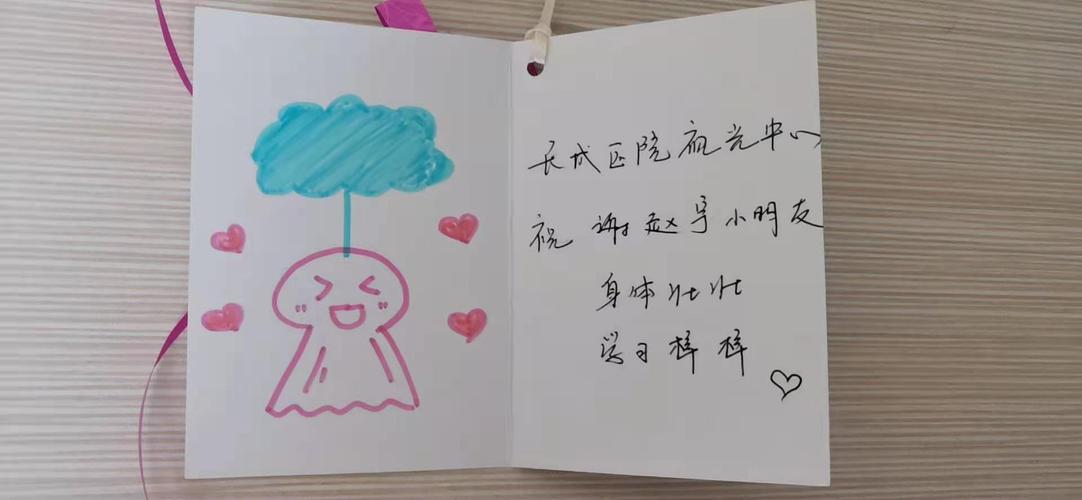 长成医院视光中心
祝 谢赵宇小朋友
身体壮壮
学习棒棒